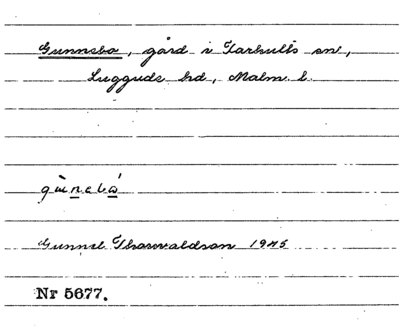 Gunnebo, gård i Farhults sn,
Luggude hd, Malm. l.
gùnebó
Gunnel Thorwaldson 1945
Nr 5677.